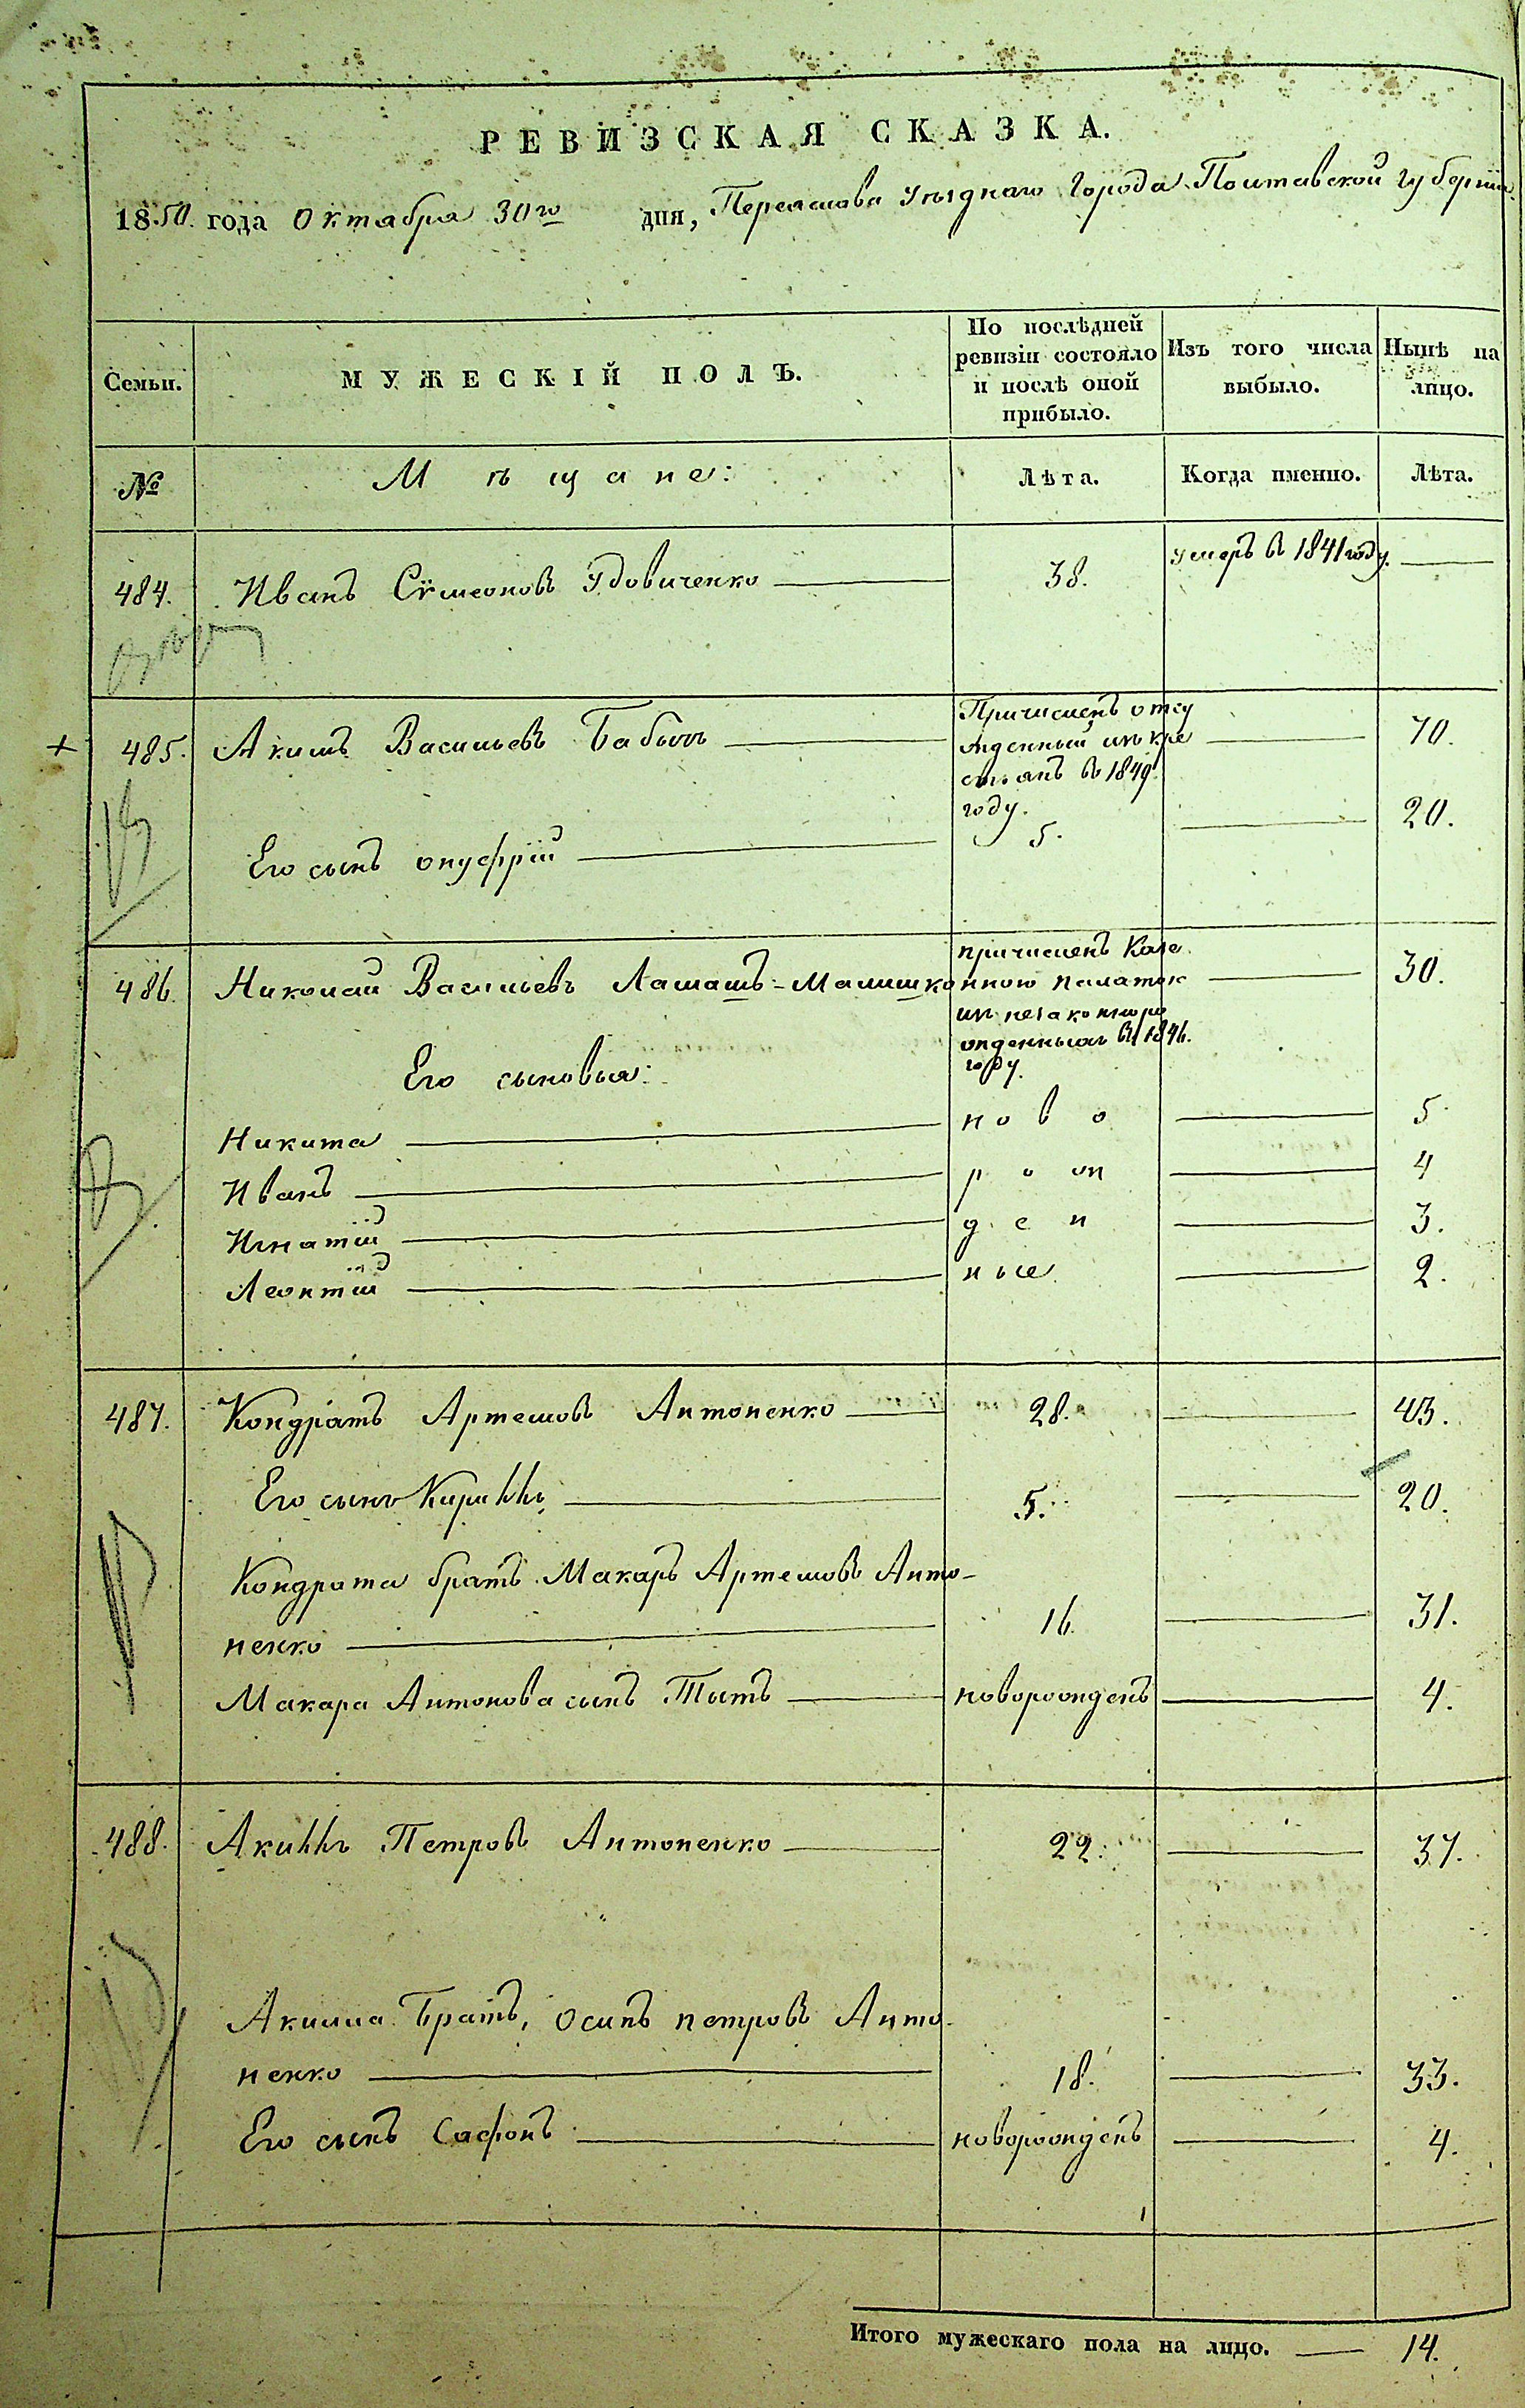 РЕВИЗСКАЯ СКАЗКА.
1850. года Октября 30го дня, Переяслова Уѣзднаго Города Полтавской Губерніи.
Семьи.
МУЖЕСКІЙ ПОЛЪ.
По послѣдней
ревизіи состояло
и послѣ оной
прибыло.
Изъ того числа
выбыло.
Нынѣ на
лицо.
№
Мѣщане:
Лѣта.
Когда именно.
Лѣта.
484. Иванъ Сѵмеоновъ Удовиченко 38. Умеръ въ 1841 году.
Причисленъ отсу
485. Акимъ Васильевъ Бабичъ 70.
жденный изъ кре
стьянъ въ 1849
году.
Его сынъ Онуфрій 5. 20.
причисленъ Казе
486. Николай Васильевъ Латашъ-Малишко 30.
нною палатою
изъ незаконноро
жденныхъ въ 1846.
году.
Его сыновья:
Никита ново 5.
Иванъ рож 4
Игнатій ден 3.
Леонтій ные 2.
487. Кондратъ Артемовъ Антоненко 28. 43.
Его сынъ Кириллъ 5. 20.
Кондрата братъ Макаръ Артемовъ Анто-
ненко 16. 31.
Макара Антонова сынъ Титъ новорожденъ 4.
488. Акиллъ Петровъ Антоненко 22. 37.
Акилла Братъ, Осипъ Петровъ Анто-
ненко 18. 33.
Его сынъ Сафонъ новорожденъ 4.
Итого мужескаго пола на лицо. 14.